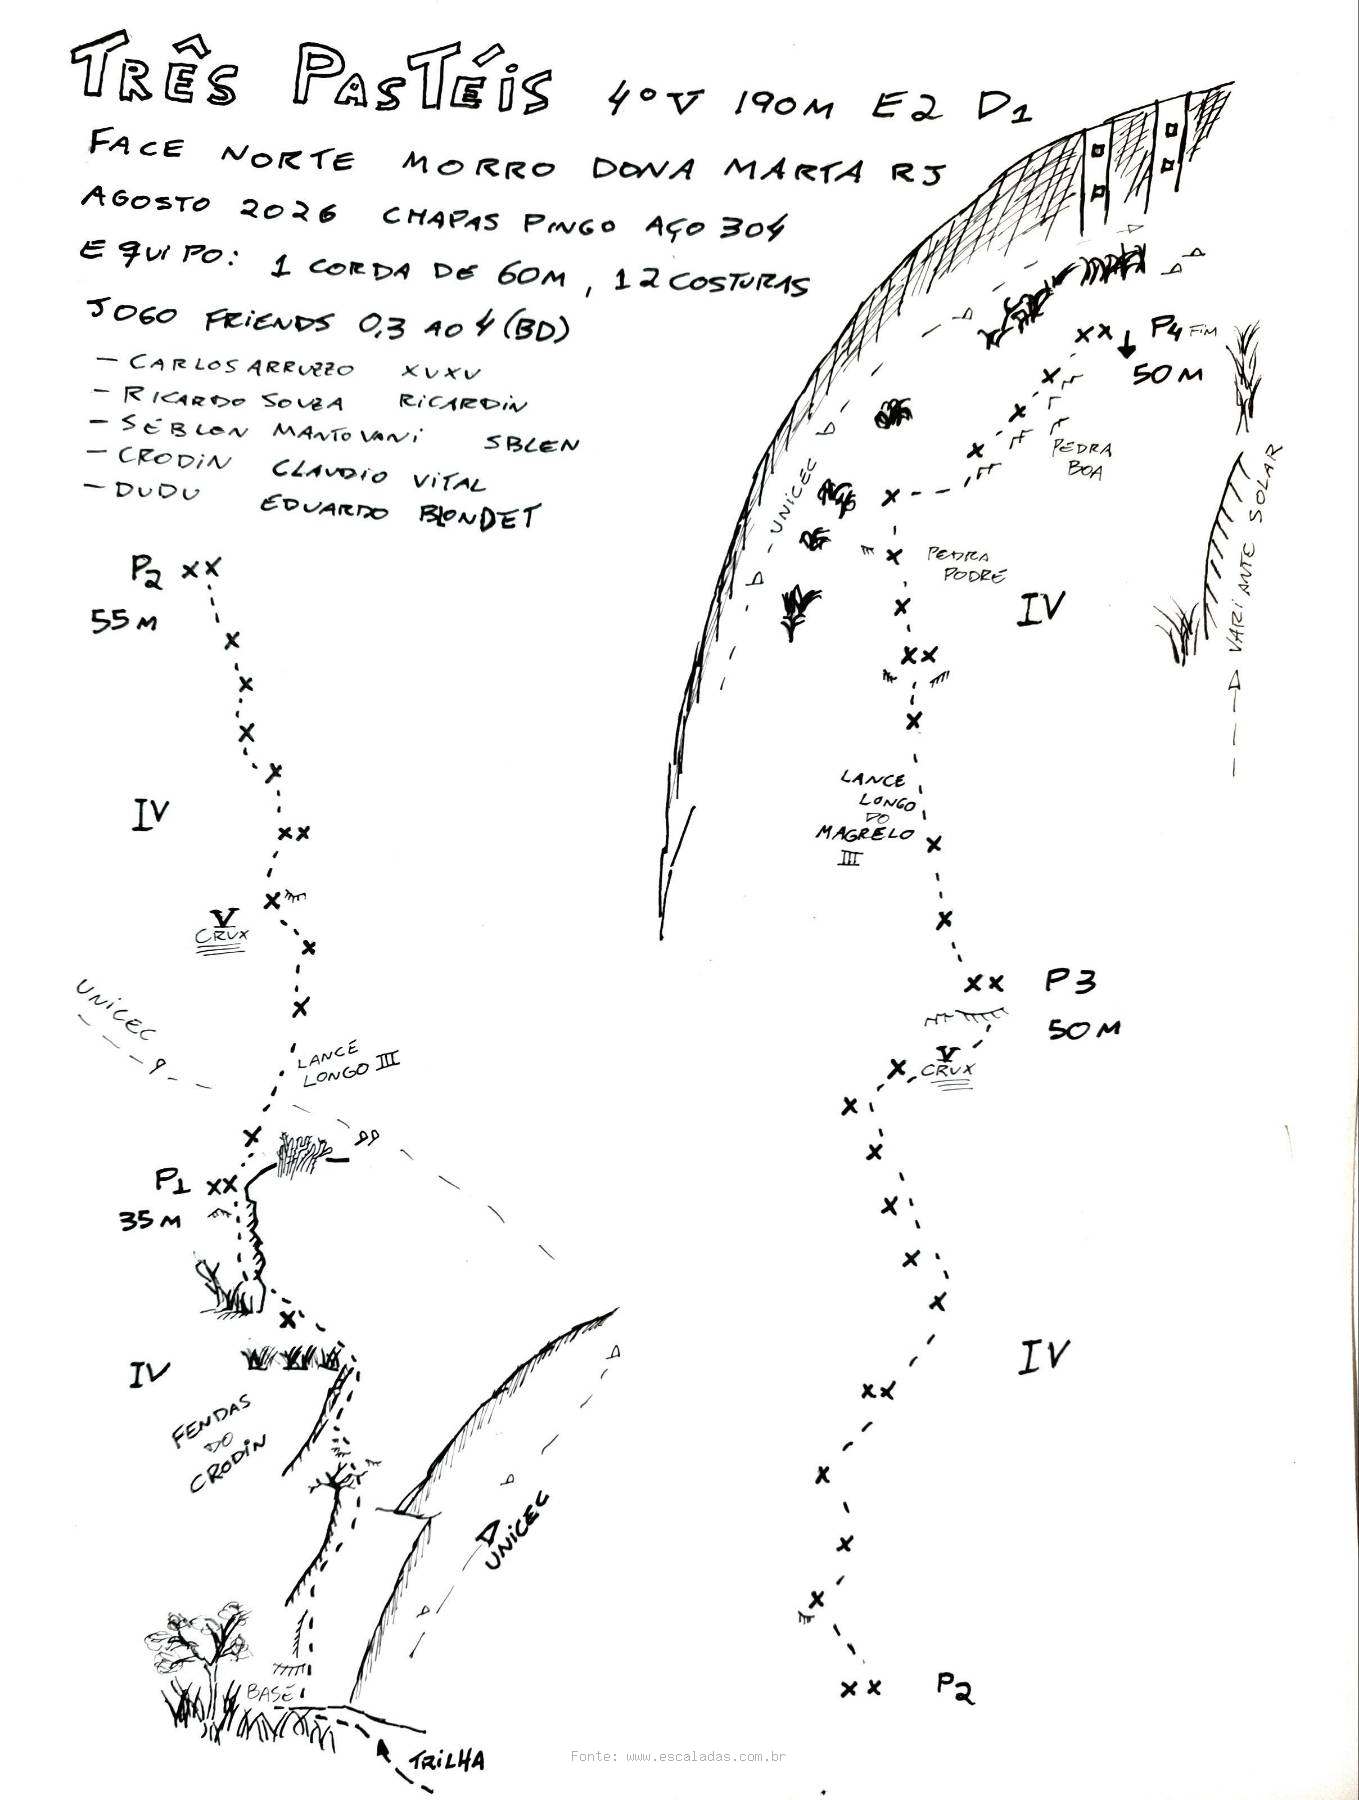 TRÊS PASTÉIS 4º V 190M E2 D1
FACE NORTE MORRO DONA MARTA RJ
AGOSTO 2026 CHAPAS PINGO AÇO 304
EQUIPO: 1 CORDA DE 60M, 12 COSTURAS
JOGO FRIENDS 0,3 AO 4 (BD)
- CARLOS ARRUZZO XUXU
- RICARDO SOUZA RICARDIN
- SÉBLEN MANTOVANI SBLEN
- CRODIN CLAUDIO VITAL
- DUDU EDUARDO BLONDET
P2
55M
IV
V
CRUX
UNICEC
LANCE
LONGO III
P1
35M
IV
FENDAS
DO
CRODIN
UNICEC
BASE
TRILHA
P4 FIM
50M
PEDRA
BOA
UNICEC
PEDRA
PODRE
IV
VARIANTE SOLAR
LANCE
LONGO
DO
MAGRELO
III
P3
50M
V
CRUX
IV
P2
Fonte: www.escaladas.com.br